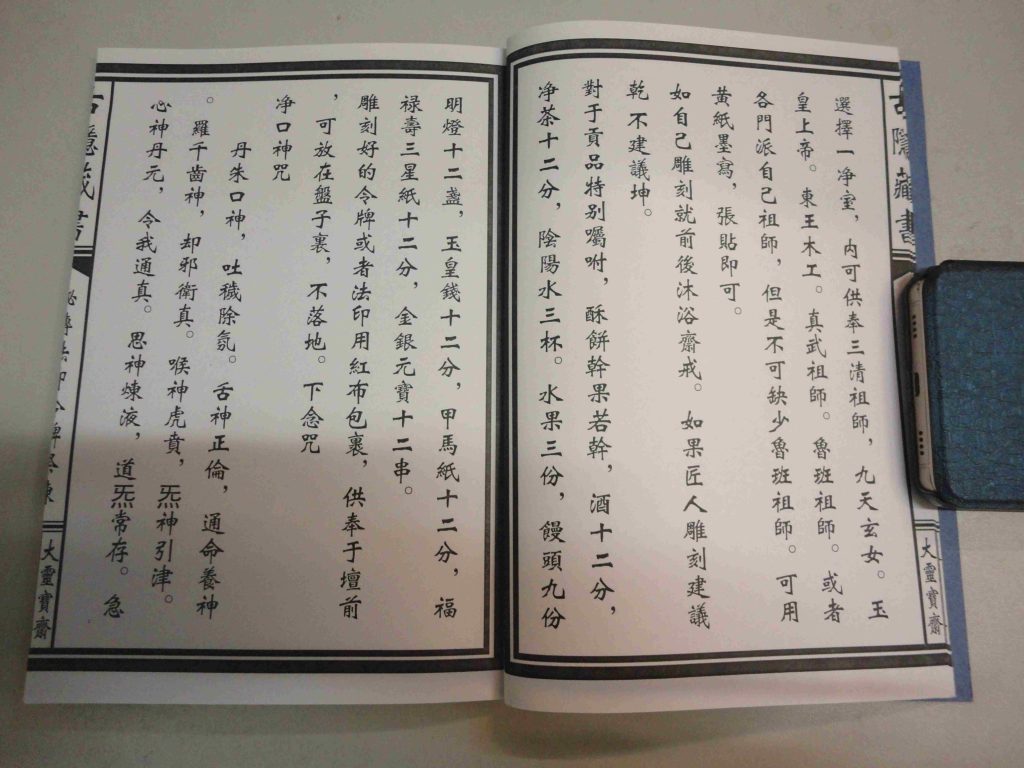 古隱藏書
大靈寶齋
選擇一净室，内可供奉三清祖師，九天玄女。玉
皇上帝。東王木工。真武祖師。魯班祖師。或者
各門派自己祖師，但是不可缺少魯班祖師。可用
黄紙墨寫，張貼即可。
如自己雕刻就前後沐浴齋戒。如果匠人雕刻建議
乾不建議坤。
對于貢品特别囑咐，酥餅幹果若幹，酒十二分，
净茶十二分，陰陽水三杯。水果三份，饅頭九份
明燈十二盞，玉皇錢十二分，甲馬紙十二分，福
禄壽三星紙十二分，金銀元寶十二串。
雕刻好的令牌或者法印用紅布包裹，供奉于壇前
，可放在盤子裏，不落地。下念咒
净口神咒
丹朱口神，吐穢除氛。舌神正倫，通命養神
。羅千齒神，却邪衛真。喉神虎賁，炁神引津。
心神丹元，令我通真。思神煉液，道炁常存。急
古隱藏書
大靈寶齋